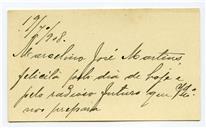 19/7º/908.
Marcelino José Martins,
felicita pelo dia de hoje e
pelo radioso futuro que
nos prepara